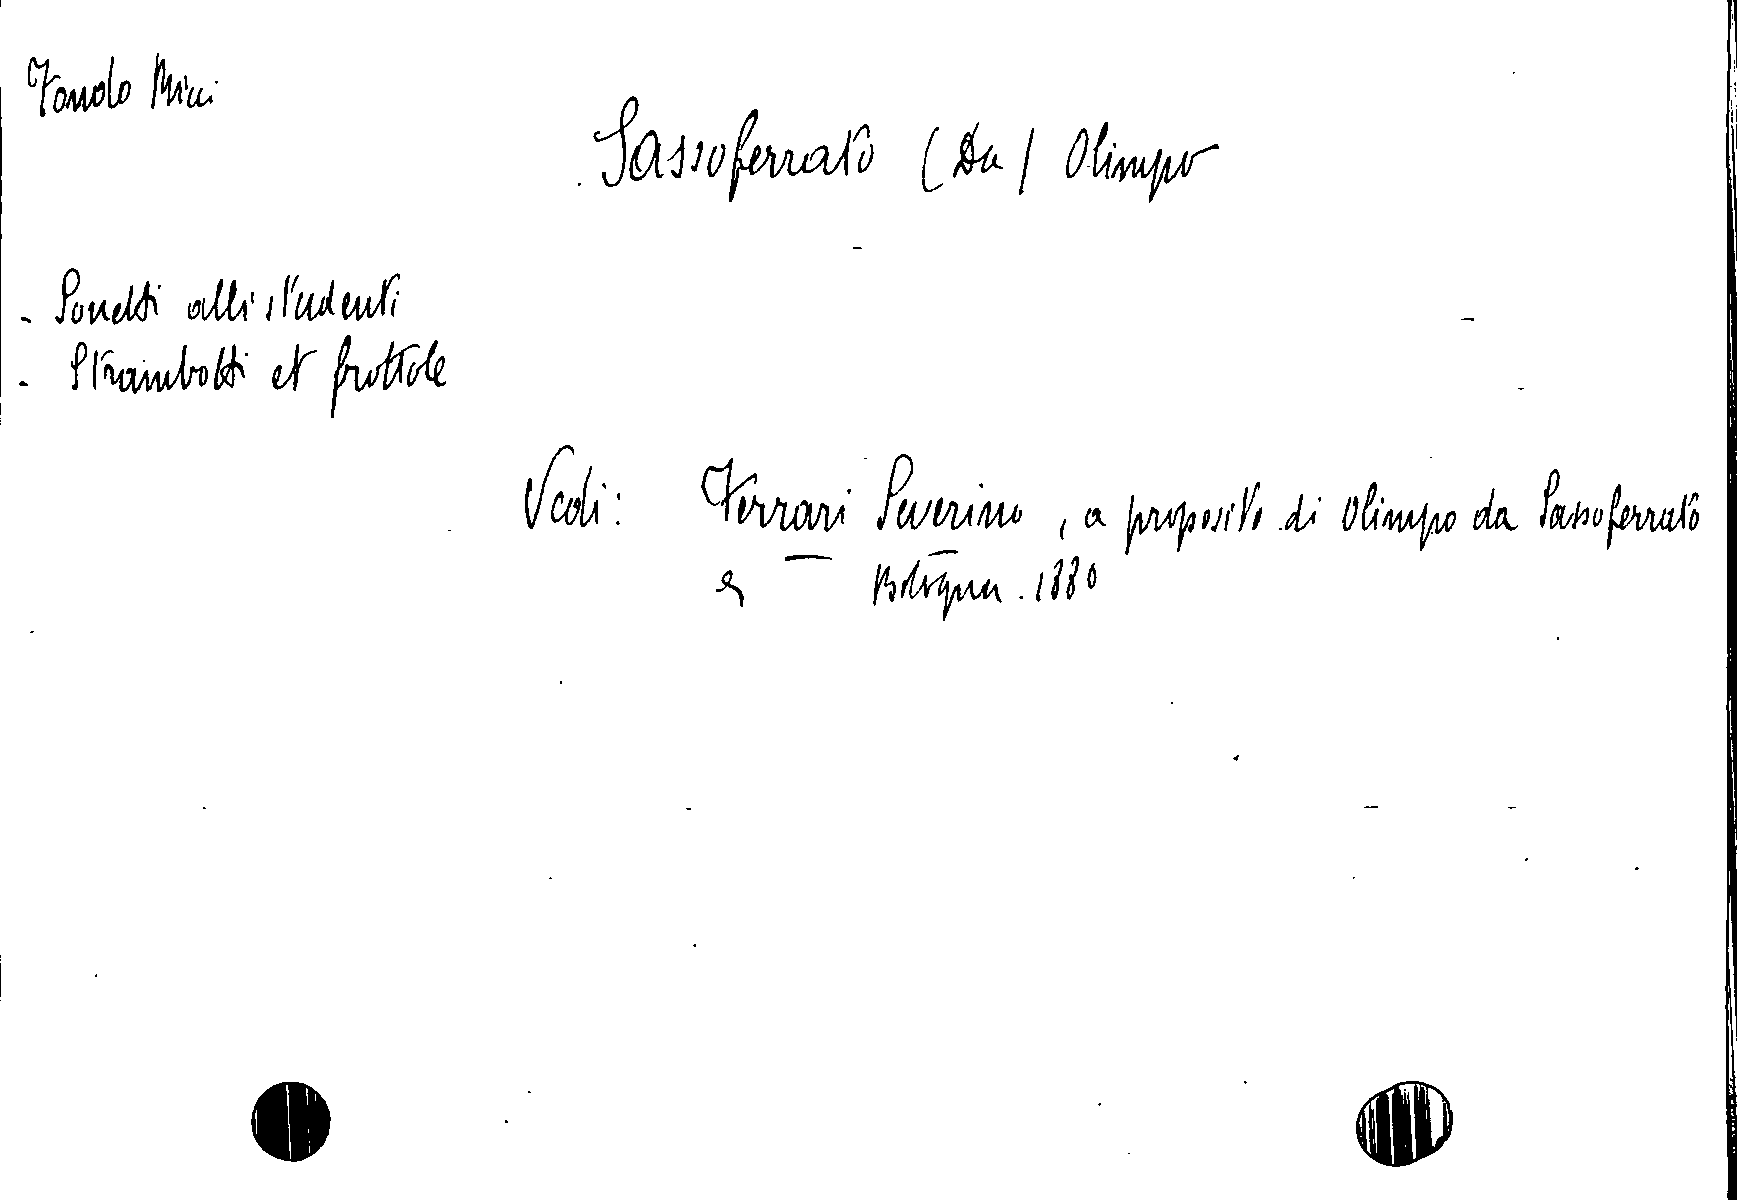 Fondo Mici
Sassoferrato (Da) Olimpo
- Sonetti alli studenti
- Strambotti et frottole
Vedi: Ferrari Severino, a proposito di Olimpo da Sassoferrato
Bologna. 1880